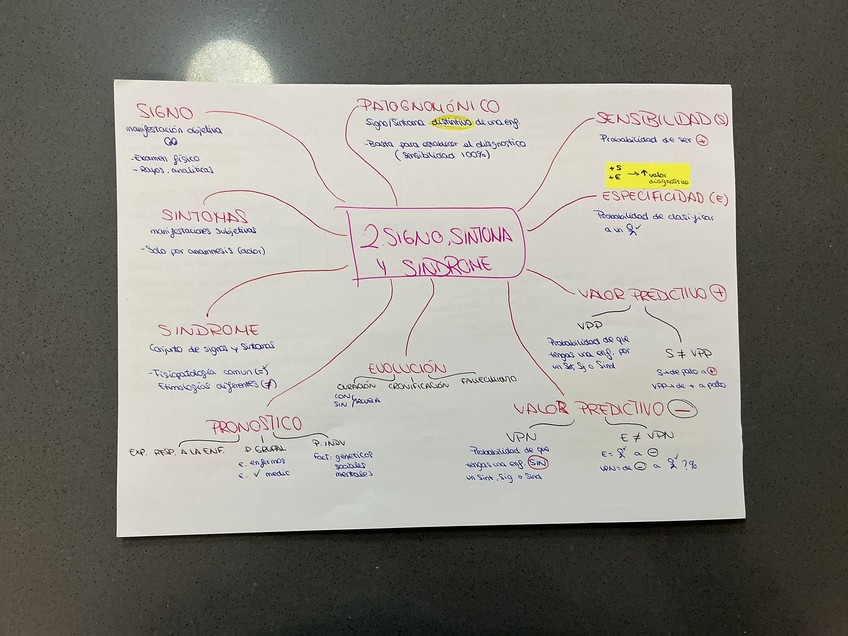 2. SIGNO, SINTOMA
Y SINDROME
SIGNO
manifestación objetiva
- Examen físico
- Rayos, analíticas
SINTOMAS
manifestaciones subjetivas
- Solo por anamnesis (dolor)
SINDROME
Conjunto de signos y síntomas
- Fisiopatología comun (=)
Etimologías diferentes (≠)
PRONOSTICO
EXP. RESP. A LA ENF.
P. GRUPAL
e. enfermos
e. ✓ medic
P. INDV
Fact: geneticos
sociales
mentales
EVOLUCIÓN
CURACIÓN
CON/
SIN / SECUELA
CRONIFICACIÓN
FALLECIMIENTO
PATOGNOMÓNICO
Signo/Sintoma distintivo de una enf.
- Basta para establecer el diagnostico
(Sensibilidad 100%)
SENSIBILIDAD (S)
Probabilidad de ser +
+ S
+ E → ↑ valor
diagnostico
ESPECIFICIDAD (E)
Probabilidad de clasificar
a un ✓
VALOR PREDICTIVO +
VPP
Probabilidad de que
tengas una enf. por
un St, Sg o Sind
S ≠ VPP
S → de pato a +
VPP → de + a pato
VALOR PREDICTIVO -
VPN
Probabilidad de que
tengas una enf. SIN
un Sint, Sig o Sind
E ≠ VPN
E = ✓ a -
VPN = de - a ✓ ?%